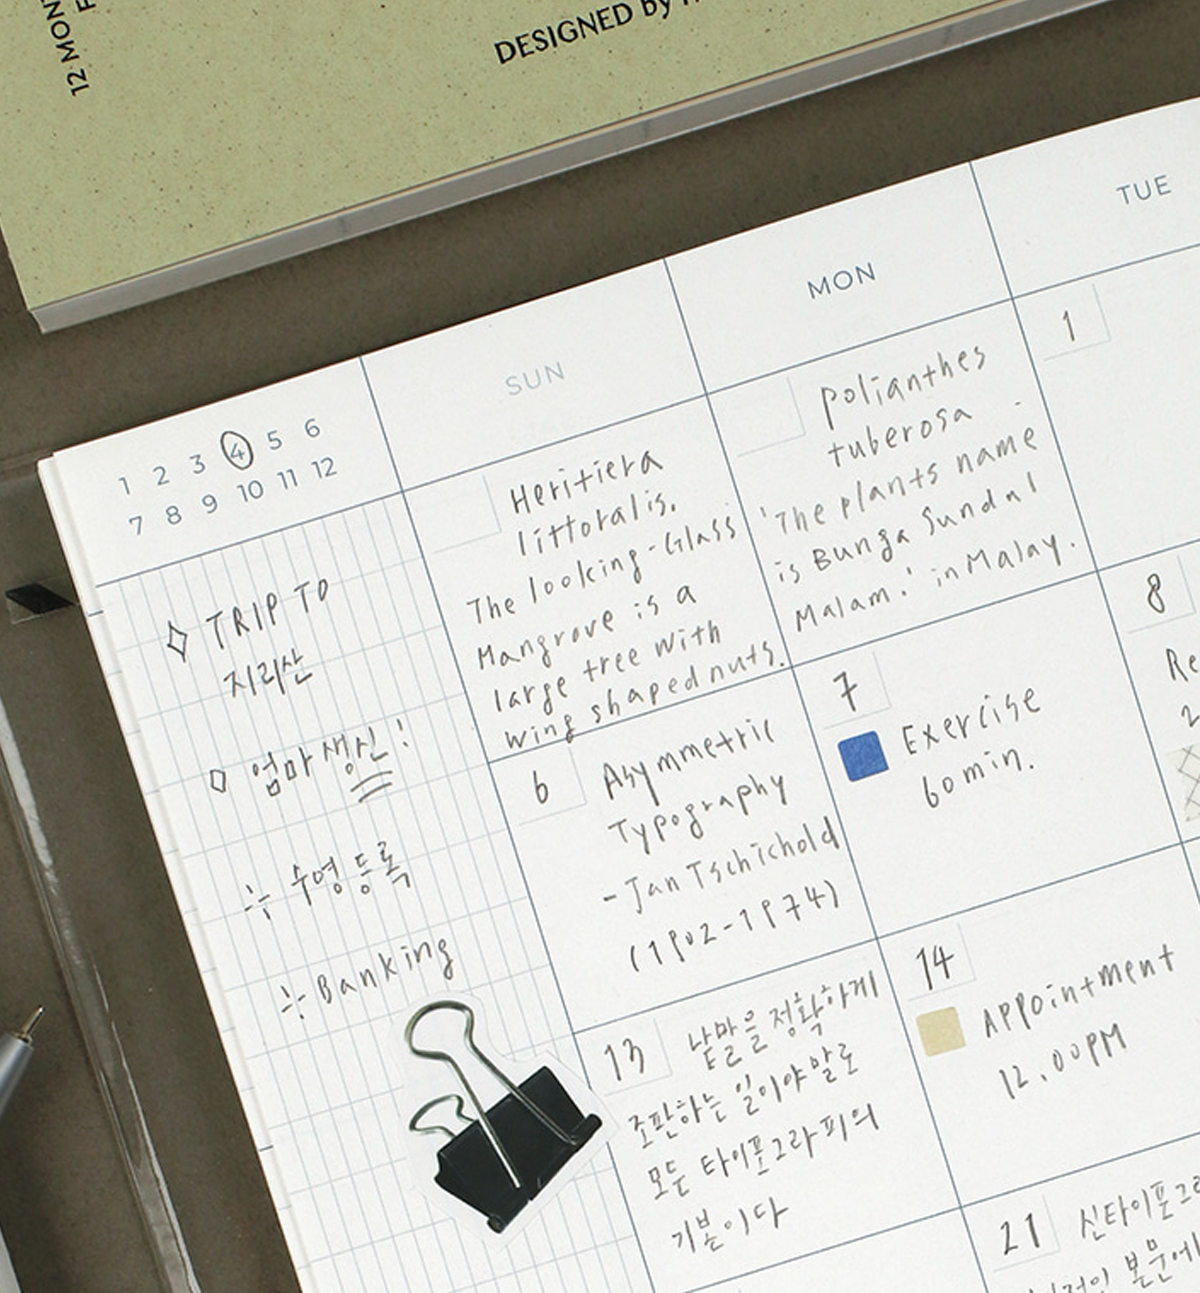 12 MON
DESIGNED by
SUN
MON
TUE
1 2 3 4 5 6
7 8 9 10 11 12
TRIP TO
지리산
엄마생신!
수영등록
Banking
Heritiera
littoralis.
The looking-Glass
Mangrove is a
large tree with
wing shaped nuts.
Polianthes
tuberosa
'The plants name
is Bunga Sundal
Malam.' in Malay.
1
6
Asymmetric
Typography
-Jan Tschichold
(1902-1974)
7
Exercise
60min.
8
Re
2
13
낱말을 정확하게
조판하는 일이야말로
모든 타이포그라피의
기본이다
14
Appointment
12.00PM
21
신타이포그라
본문에